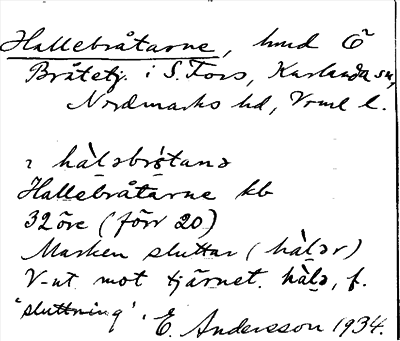 Hallebråtarne, hmd Ö
Bråtetj. i S. Fors, Karlanda sn,
Nordmarks hd, Vrml l.
hàləbrɷ̀tanə
Hallebråtarne kb
32 öre (förr 20)
Marken sluttar (hàləɾ)
V-ut mot tjärnet. hàlə, f.
'sluttning'.
E. Andersson 1934.